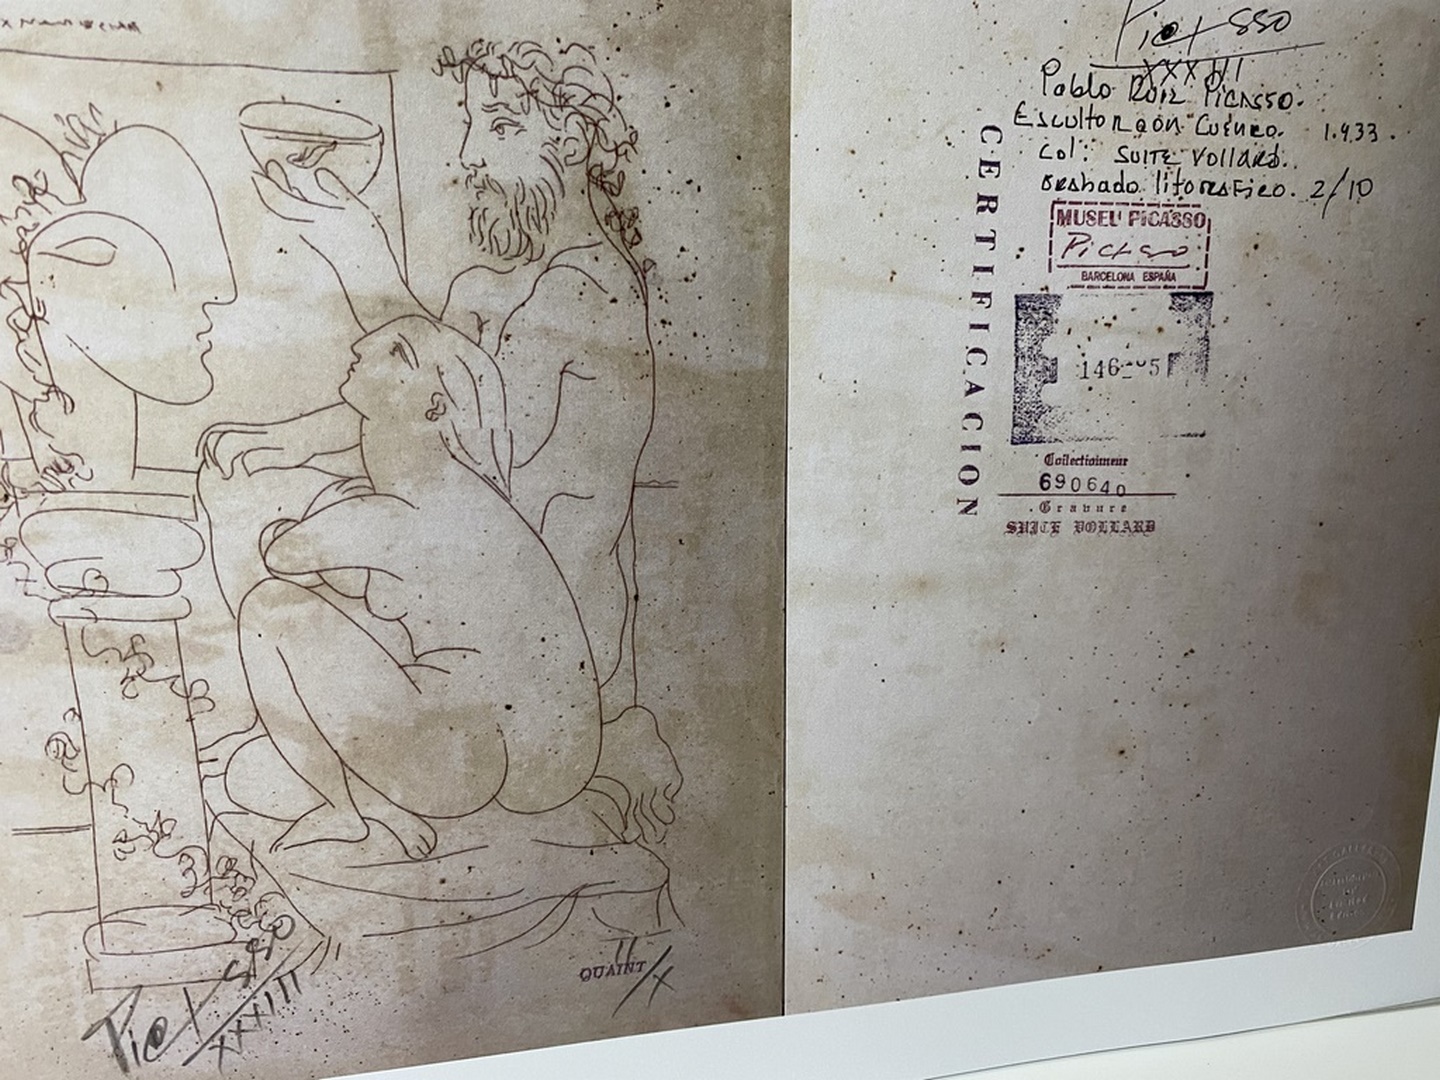 Picasso
XXXIII
QUAINT
II/X
Picasso
XXXIII
Pablo Ruiz Picasso.
Escultor con Cuenco. 1.933.
Col: Suite Vollard.
Grabado litografico. 2/10
CERTIFICACION
MUSEU PICASSO
Picasso
BARCELONA ESPAÑA
Collectionneur
690640
Gravure
SUITE VOLLARD